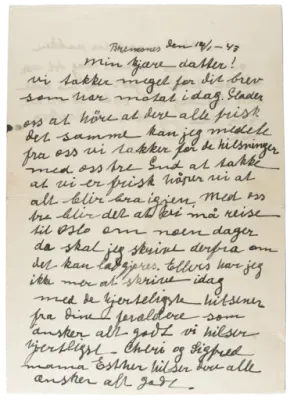 Bremsnes den 14/1 - 43
Min kjære datter!
vi takker meget for dit brev
som har motat i dag. Glæder
oss at høre at dere alle frisk
det samme kan jeg medele
fra oss vi takker for de hilsninger
med oss tre Gud at takke
at vi er frisk håper vi at
alt blir bra igjen. Med oss
tre blir det at vi må reise
til Oslo om noen dager
da skal jeg skrive derfra om
det kan lad gjøres. Ellers har jeg
ikke mer at skrive i dag
med de hjerteligste hilsener
fra dine foreldre som
ønsker alt godt vi hilser
hjertligst. Cheri og Sigfred
mama Esther hilser dere alle
ønsker alt godt.